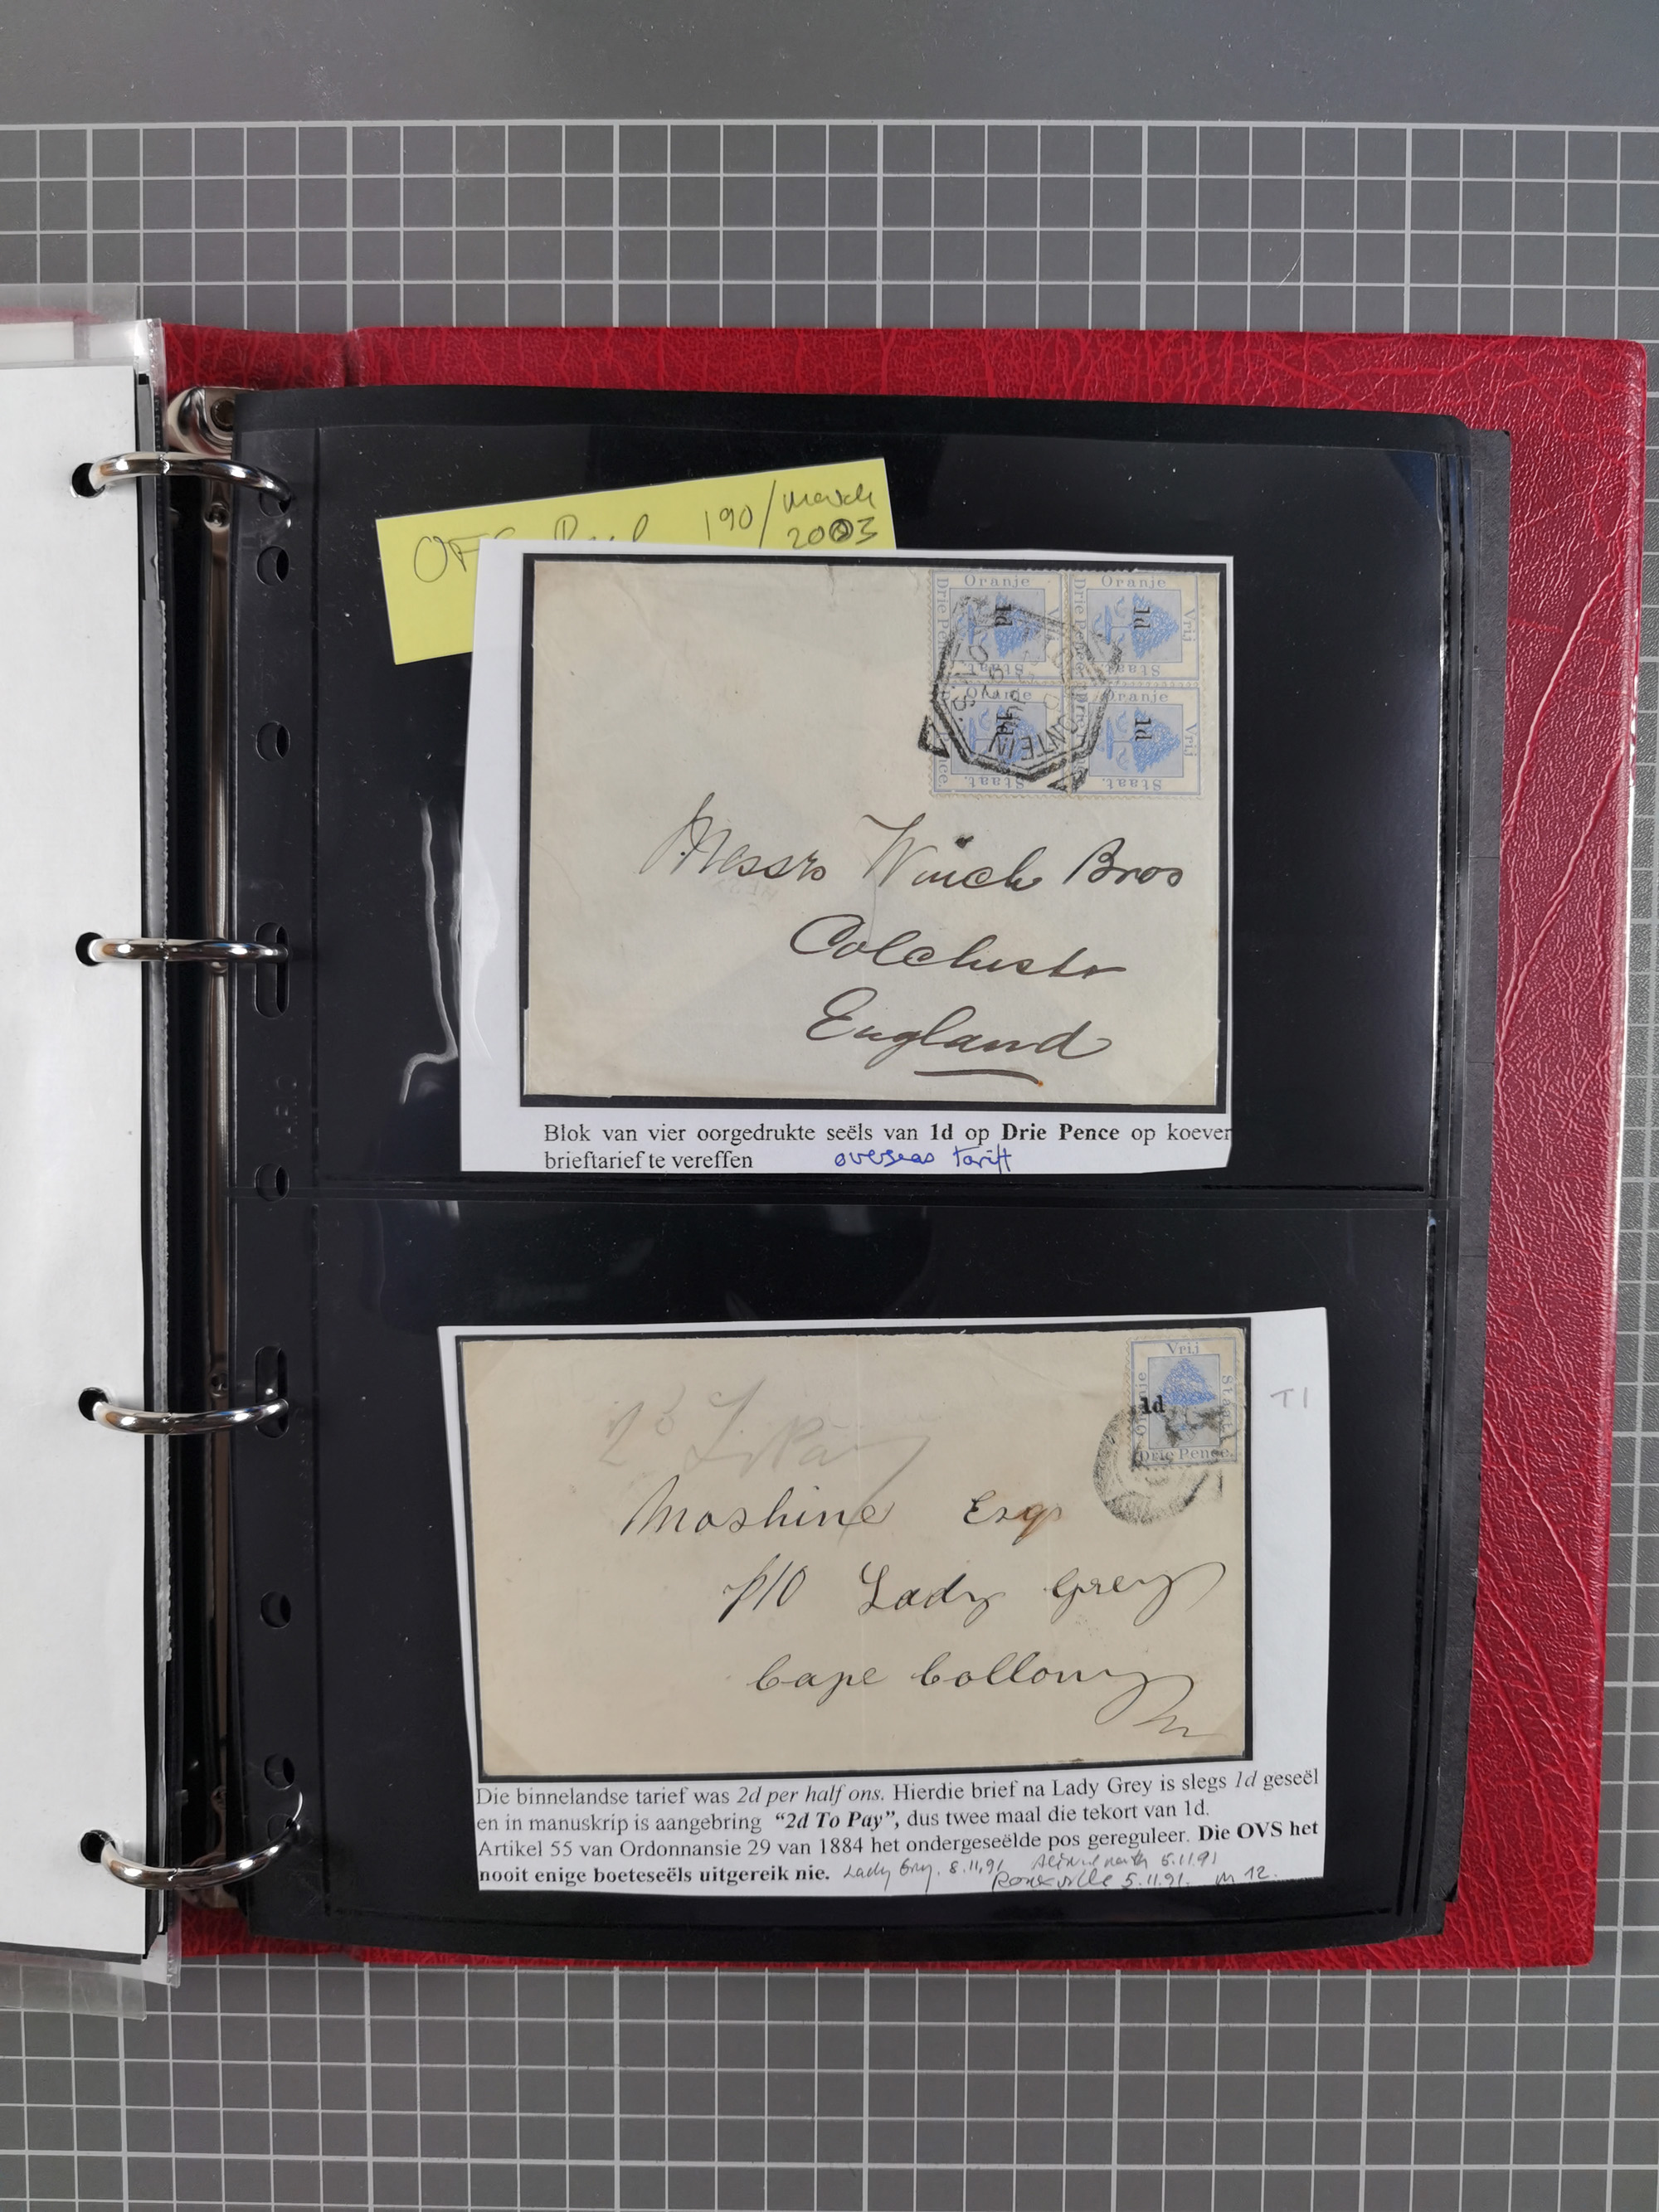 190/March
2003
Oranje Oranje
Drie Pence Vrij
1d 1d
Staat. Staat.
Oranje Oranje
1d 1d
Vrij
Staat. Staat.
Messrs Winch Bros
Colchester
England
Blok van vier oorgedrukte seëls van 1d op Drie Pence op koever
brieftarief te vereffen overseas tariff
Vrij
Staat.
1d
Drie Pence.
T1
2d To Pay
Moshine Esqr
P/O Lady Grey
Cape Collony
Die binnelandse tarief was 2d per half ons. Hierdie brief na Lady Grey is slegs 1d geseël
en in manuskrip is aangebring “2d To Pay”, dus twee maal die tekort van 1d.
Artikel 55 van Ordonnansie 29 van 1884 het ondergeseëlde pos gereguleer. Die OVS het
nooit enige boeteseëls uitgereik nie. Lady Grey. 8.11.91 Aliwal North 6.11.91
Rouxville 5.11.91. M 12.